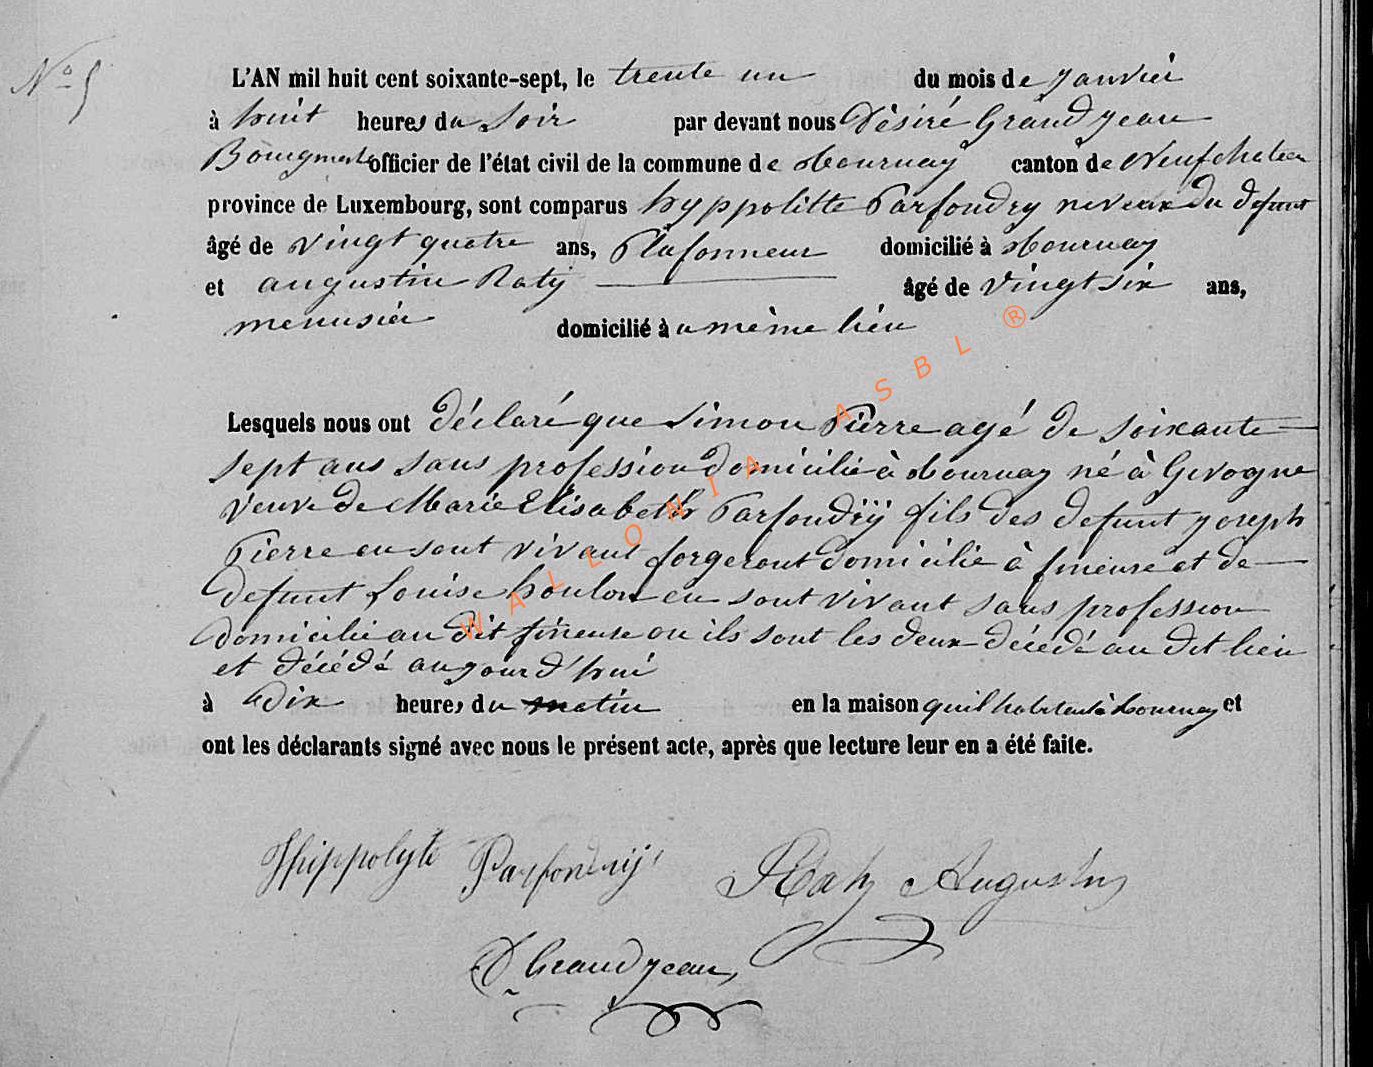 N° 5
L'AN mil huit cent soixante-sept, le trente un du mois de janvier
à huit heures du soir par devant nous Désiré Grandjean
Bourgmestre officier de l'état civil de la commune de Tournay canton de Neufchateau
province de Luxembourg, sont comparus hyppolitte Parfondry neveux du defunt
âgé de vingt quatre ans, Plafonneur domicilié à Tournay
et augustin Raty âgé de vingt six ans,
menusier domicilié à u même lieu
Lesquels nous ont déclaré que Simon Pierre agé de soixante
sept ans sans profession domicilié à Tournay né à Givogne
veuve de Marie Elisabeth Parfondrÿ fils des defunt joseph
Pierre en sont vivant forgeront domicilié à fineuse et de
defunt Louise houlon en sont vivant sans profession
domicilié au dit fineuse ou ils sont les deux décédé au dit lieu
et décédé aujourd'hui
à dix heures du matin en la maison quil habitent à Tournay et
ont les déclarants signé avec nous le présent acte, après que lecture leur en a été faite.
Hippolyte Parfondrij
Raty Augustin
D Grandjean
WALLONIA ASBL ®